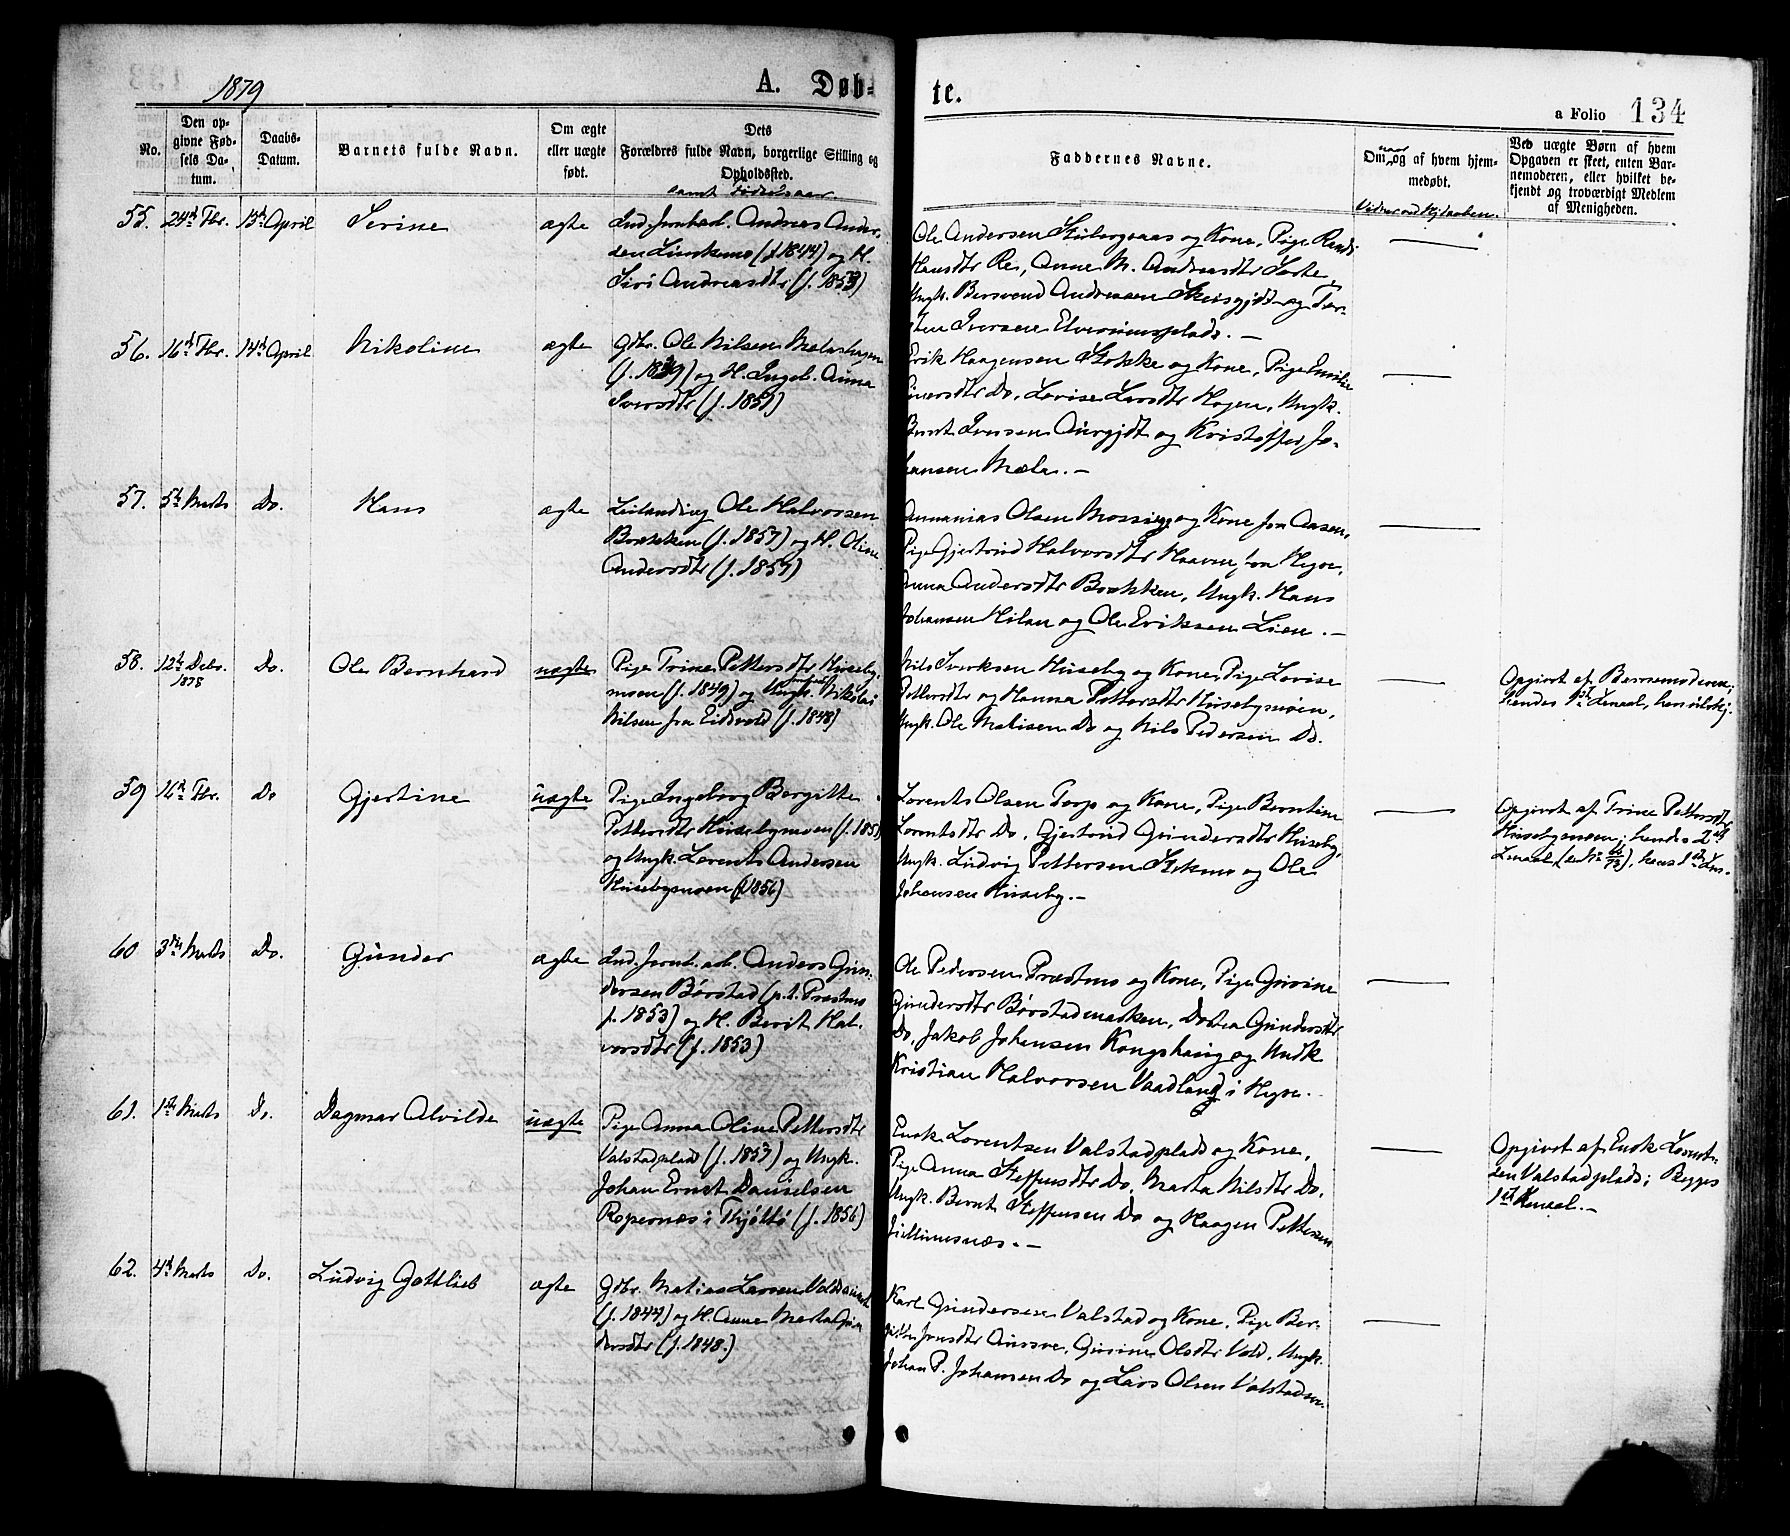 1879
A. Døb-
te.
a Folio 134
No.
Den op-
givne Fød-
sels Da-
tum.
Daabs-
Datum.
Barnets fulde Navn.
Om ægte
eller uægte
født.
Dets
Forældres fulde Navn, borgerlige Stilling og
Opholdssted.
samt Fødselsaar.
Faddernes Navne.
Om, naar og af hvem hjem-
medøbt.
Ved uægte Børn af hvem
Opgaven er skeet, enten Bar-
nemoderen, eller hvilket be-
kjendt og troværdigt Medlem
af Menigheden.
55. 24de Fbr. 13de April Serine ægte
Ind. Jernbarb. Andreas Ander-
sen (f. 1844) og H.
Siri Andreasdtr (f. 1853)
Ole Andersen og Kone, Pige Randi
Hansdtr Re, Anne M. Andreasdtr
Ungk. Bersvend Andreasen og Tor-
sten Iversen
56. 16de Fbr. 14de April Nikoline ægte
Gdbr. Ole Nilsen
(f. 1839) og H. Ingeb. Anna
Iversdtr (f. 1851)
Erik Haagensen Stokke og Kone, Pige Emilie
Einersdtr Do, Lovise Larsdtr Hagen, Ungk.
Bernt Iversen Aurgjdt og Kristoffer Jo-
hansen Mæla. -
57. 5te Marts Do. Hans ægte
Leilending Ole Halvorsen
Brækken (f. 1857) og H. Oline
Andersdtr (f. 1857)
Annanias Olsen og Kone fra Aasen,
Pige Gjertrud Halvorsdtr Haaven fra Hegre,
Anna Andersdtr Brækken, Ungk. Hans
Johansen Hilan og Ole Eriksen Lien. -
58. 12te Debr. 1878 Do. Ole Bernhard uægte
Pige Trine Pettersdtr Huseby-
moen (f. 1849) og Ungk. Nikolai
Nilsen fra Eidsvold (f. 1848)
Nils Sverksen Huseby og Kone, Pige Lovise
Pettersdtr og Hanna Pettersdtr Husebymoen,
Ungk. Ole Matisen Do og Nils Pedersen Do.
Opgivet af Barnemoderen;
hendes 1ste Lemaal,
59 16de Fbr. Do Gjertine uægte
Pige Ingeborg Bergitte
Pettersdtr Husebymoen (f. 185
og Ungk. Lorents Andersen
Husebymoen (f. 1856)
Lorents Olsen Torp og Kone, Pige Berntine
Lorentsdtr Do, Gjertrud Gundersdtr Huseby,
Ungk. Ludvig Pettersen og Ole
Johansen Huseby. -
Opgivet af Trine Pettersdtr
Husebymoen; hendes 2det
Lemaal, hans 1ste Lem-
60 3die Marts Do. Gunder ægte
Ind. Jernb. arb. Anders Gun-
dersen Børstad (p.t. Præstmo
f. 1853) og H. Berit Hal-
vorsdtr (f. 1853)
Ole Pedersen Præstmo og Kone, Pige Gurine
Gundersdtr Børstadmarken, Dortea Gundersdtr
Do, Jakob Johansen Kongshaug og Undk
Kristian Halvorsen Vaadland i Hegre.
61. 1ste Marts Do. Dagmar Alvilde uægte
Pige Anna Oline Pettersdtr
Valstadplads (f. 1853) og Ungk.
Johan Ernst Danielsen
Ropernæs i Thjøttø (f. 1856)
Enok Lorentsen Valstadplads og Kone,
Pige Anna Steffensdtr Do, Marta Nilsdtr Do,
Ungk. Bernt Steffensen Do og Haagen Pettersen
Opgivet af Enok Lorent-
sen Valstadplads; Begges
1ste Lemaal. -
62. 4de Marts Do. Ludvig Gottlieb ægte
Gdbr. Matias Larsen
(f. 1844) og H. Anne Marta Gun
dersdtr (f. 1848.)
Karl Gundersen Valstad og Kone, Pige Ber-
Jonsdtr Aursve, Gurine Olsdtr Vold, Ungk.
Johan P. Johansen Do og Lars Olsen